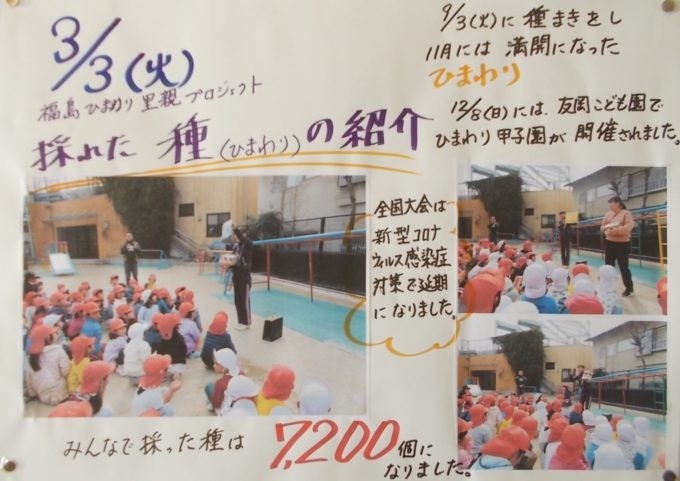 3/3(火)
福島ひまわり里親プロジェクト
採れた種(ひまわり)の紹介
9/3(火)に種まきをし
11月には満開になった
ひまわり
12/8(日)には、友岡こども園で
ひまわり甲子園が開催されました。
全国大会は
新型コロナ
ウィルス感染症
対策で延期
になりました。
みんなで採った種は
7,200個に
なりました!